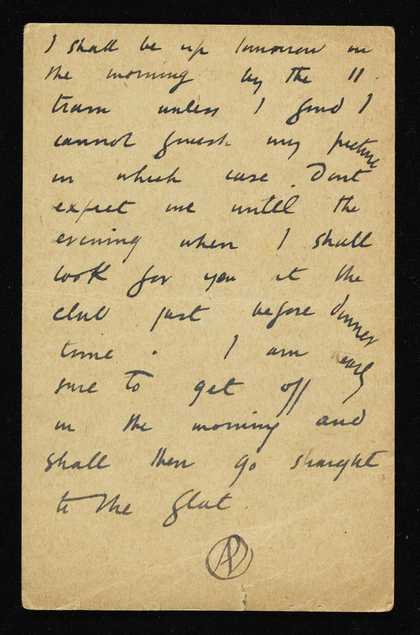 I shall be up tomorrow in
the morning by the 11
train unless I find I
cannot finish my picture
in which case. Dont
expect me until the
evening when I shall
look for you at the
club just before dinner
time. I am nearly
sure to get off
in the morning and
shall then go straight
to the flat.